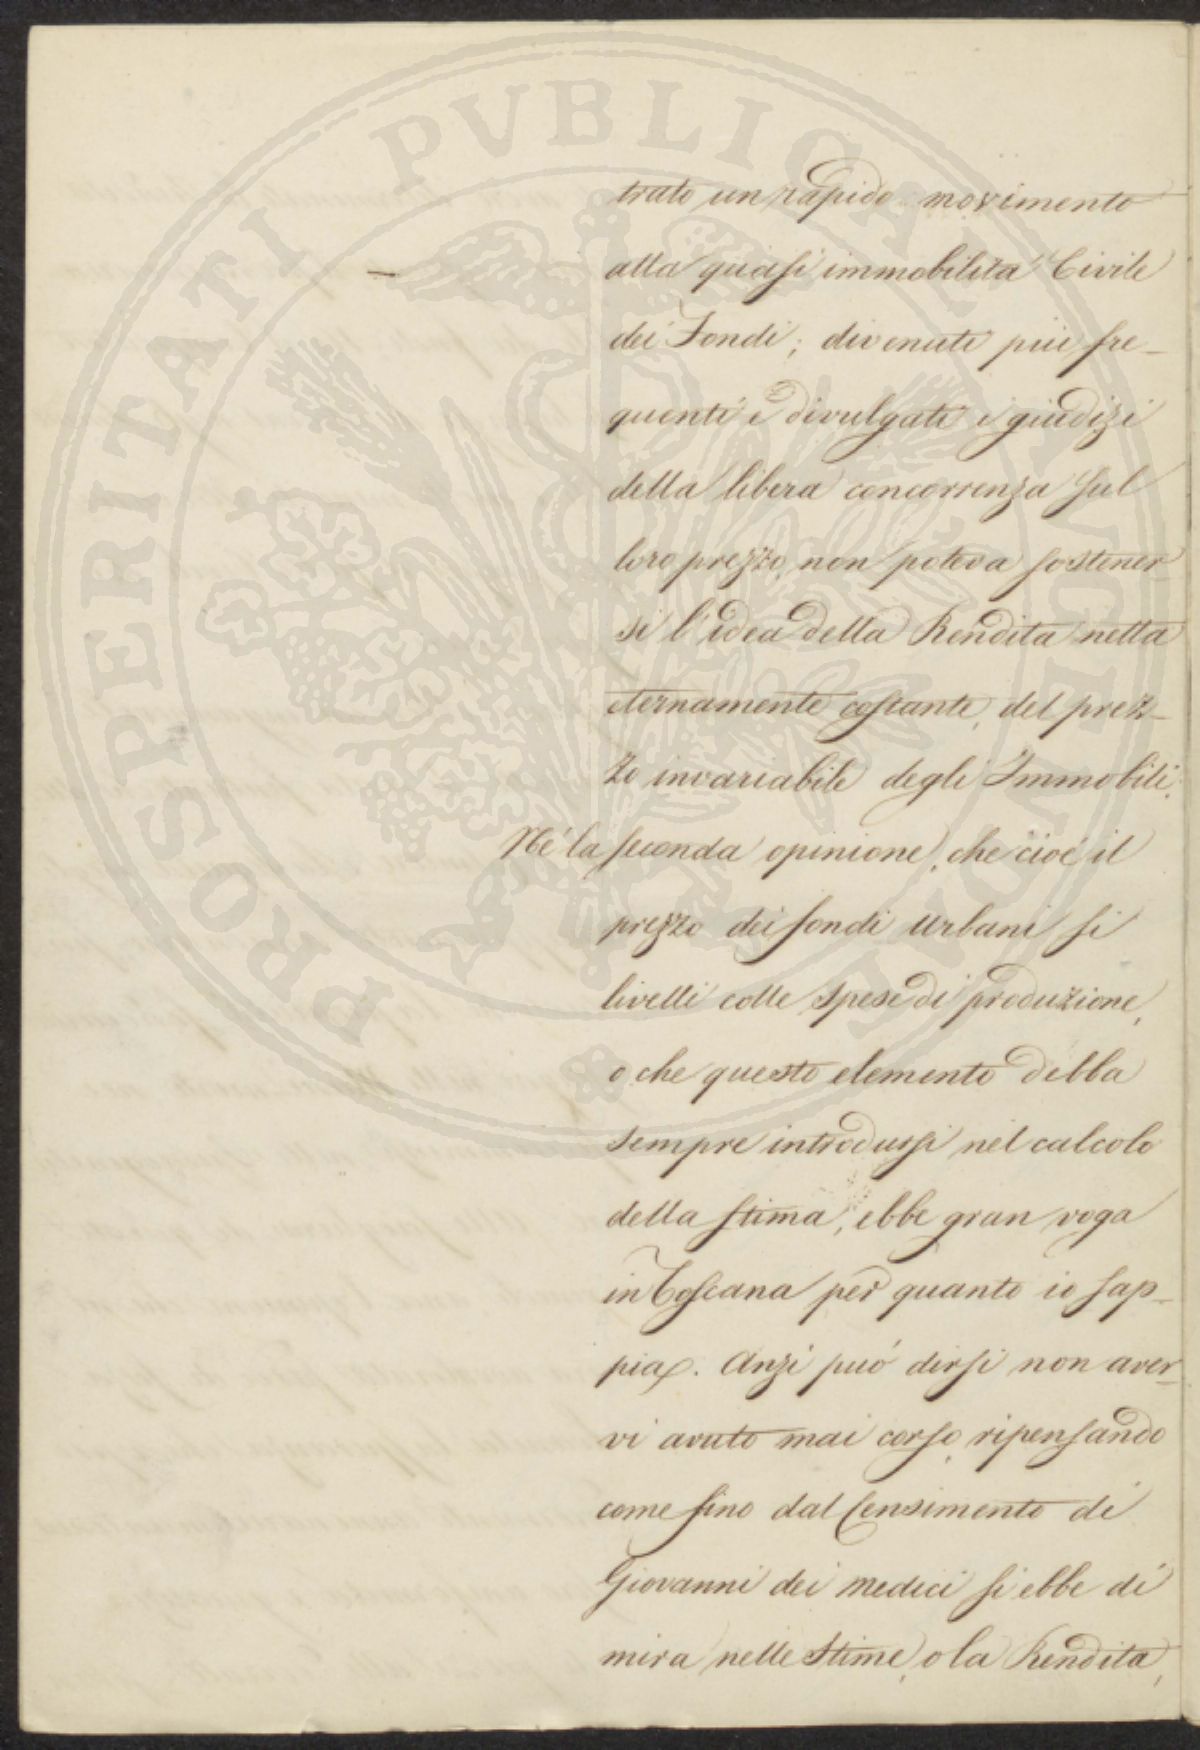 PROSPERITATI PUBLICAE AUGENDAE
trato un rapido movimento
alla quasi immobilità Civile
dei Fondi; divenuti più fre-
quenti e divulgati i giudizi
della libera concorrenza sul
loro prezzo, non poteva sostener
si l'idea della Rendita netta
eternamente costante, del prez-
zo invariabile degli Immobili.
Né la seconda opinione, che cioé il
prezzo dei fondi urbani si
livelli colle spese di produzione,
o che questo elemento debba
sempre introdursi nel calcolo
della stima, ebbe gran voga
in Toscana per quanto io sap-
pia. Anzi può dirsi non aver-
vi avuto mai corso, ripensando
come fino dal Censimento di
Giovanni dei Medici si ebbe di
mira nelle stime, o la Rendita,